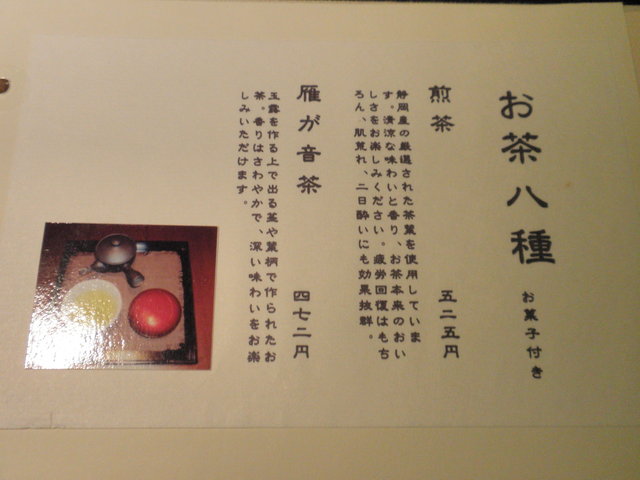 お茶八種 お菓子付き
煎茶 五二五円
静岡産の厳選された茶葉を使用していま
す。清涼な味わいと香り、お茶本来のおい
しさをお楽しみください。疲労回復はもち
ろん、肌荒れ、二日酔いにも効果抜群。
雁が音茶 四七二円
玉露を作る上で出る茎や葉柄で作られたお
茶。香りはさわやかで、深い味わいをお楽
しみいただけます。